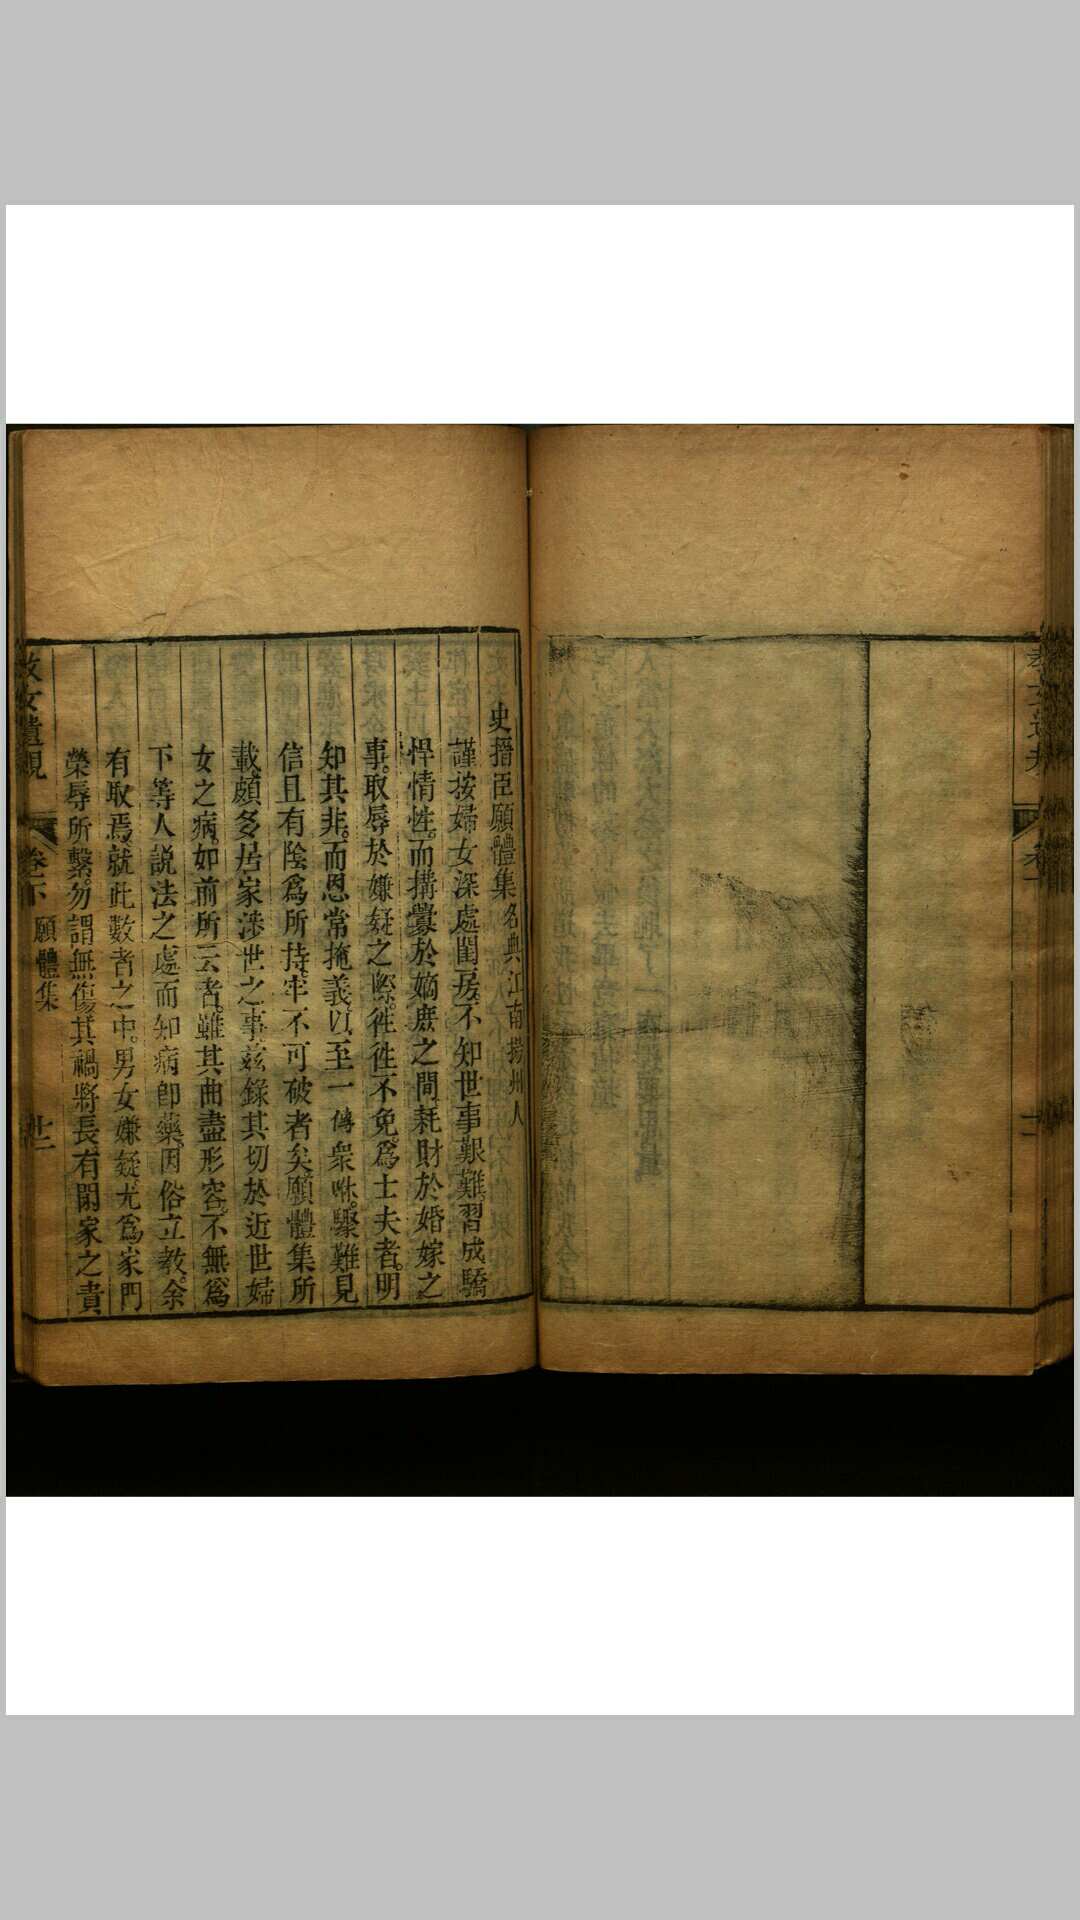 史搢臣願體集名典江南揚州人
謹按婦女深處閨房不知世事艱難習成驕
悍情性。而搆釁於嫡庶之間。耗財於婚嫁之
事。取辱於嫌疑之際。徃徃不免。爲士夫者。明
知其非。而恩常掩義。以至一傳衆咻。驟難見
信。且有陰爲所持。牢不可破者矣。願體集所
載。頗多居家涉世之事。兹錄其切於近世婦
女之病。如前所云者。雖其曲盡形容。不無爲
下等人說法之處。而知病卽藥。因俗立教。余
有取焉。就此數者之中。男女嫌疑。尤爲家門
榮辱所繫。勿謂無傷。其禍將長。有閑家之責
教女遺規 卷下 願體集 廿二